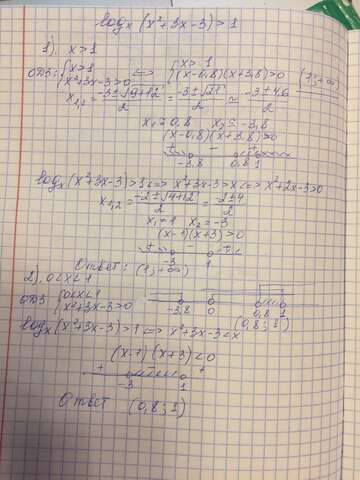 log_x (x²+3x-3) > 1
1) x>1
ОДЗ: { x>1 ; x²+3x-3>0 <=> { x>1 ; (x-0,8)(x+3,8)>0 (1;+∞)
x₁,₂ = (-3±√(9+12))/2 = (-3±√21)/2 ≈ (-3±4,6)/2
x₁ ≈ 0,8 x₂ ≈ -3,8
(x-0,8)(x+3,8)>0
+ - +
-3,8 0,8 1
log_x (x²+3x-3)>1 <=> x²+3x-3>x <=> x²+2x-3>0
x₁,₂ = (-2±√(4+12))/2 = (-2±4)/2
x₁=1 x₂=-3
(x-1)(x+3)>0
+ - +
-3 1
Ответ: (1;+∞)
2) 0<x<1
ОДЗ { 0<x<1 ; x²+3x-3>0
-3,8 0 0,8 1
(0,8;1)
log_x (x²+3x-3)>1 <=> x²+3x-3<x
(x-1)(x+3)<0
+ - +
-3 1
Ответ (0,8;1)